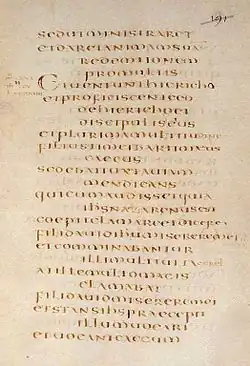 191
sed ut ministraret
et daret animam suā
redemtionem
pro multis
Et ueniunt hiericho
et proficiscente eo
de hiericho et
discipulis eius
et plurima multitudine
filius timei bartimeus
caecus
sedebat iuxta uiam
mendicans
qui cum audisset quia
ihs nazarenus est
coepit clamare et dicere
fili dauid ihu miserere mei
et comminabantur
illi multi ut taceret
at ille multo magis
clamabat
fili dauid miserere mei
et stans ihs praecepit
illum uocari
et uocant caecum